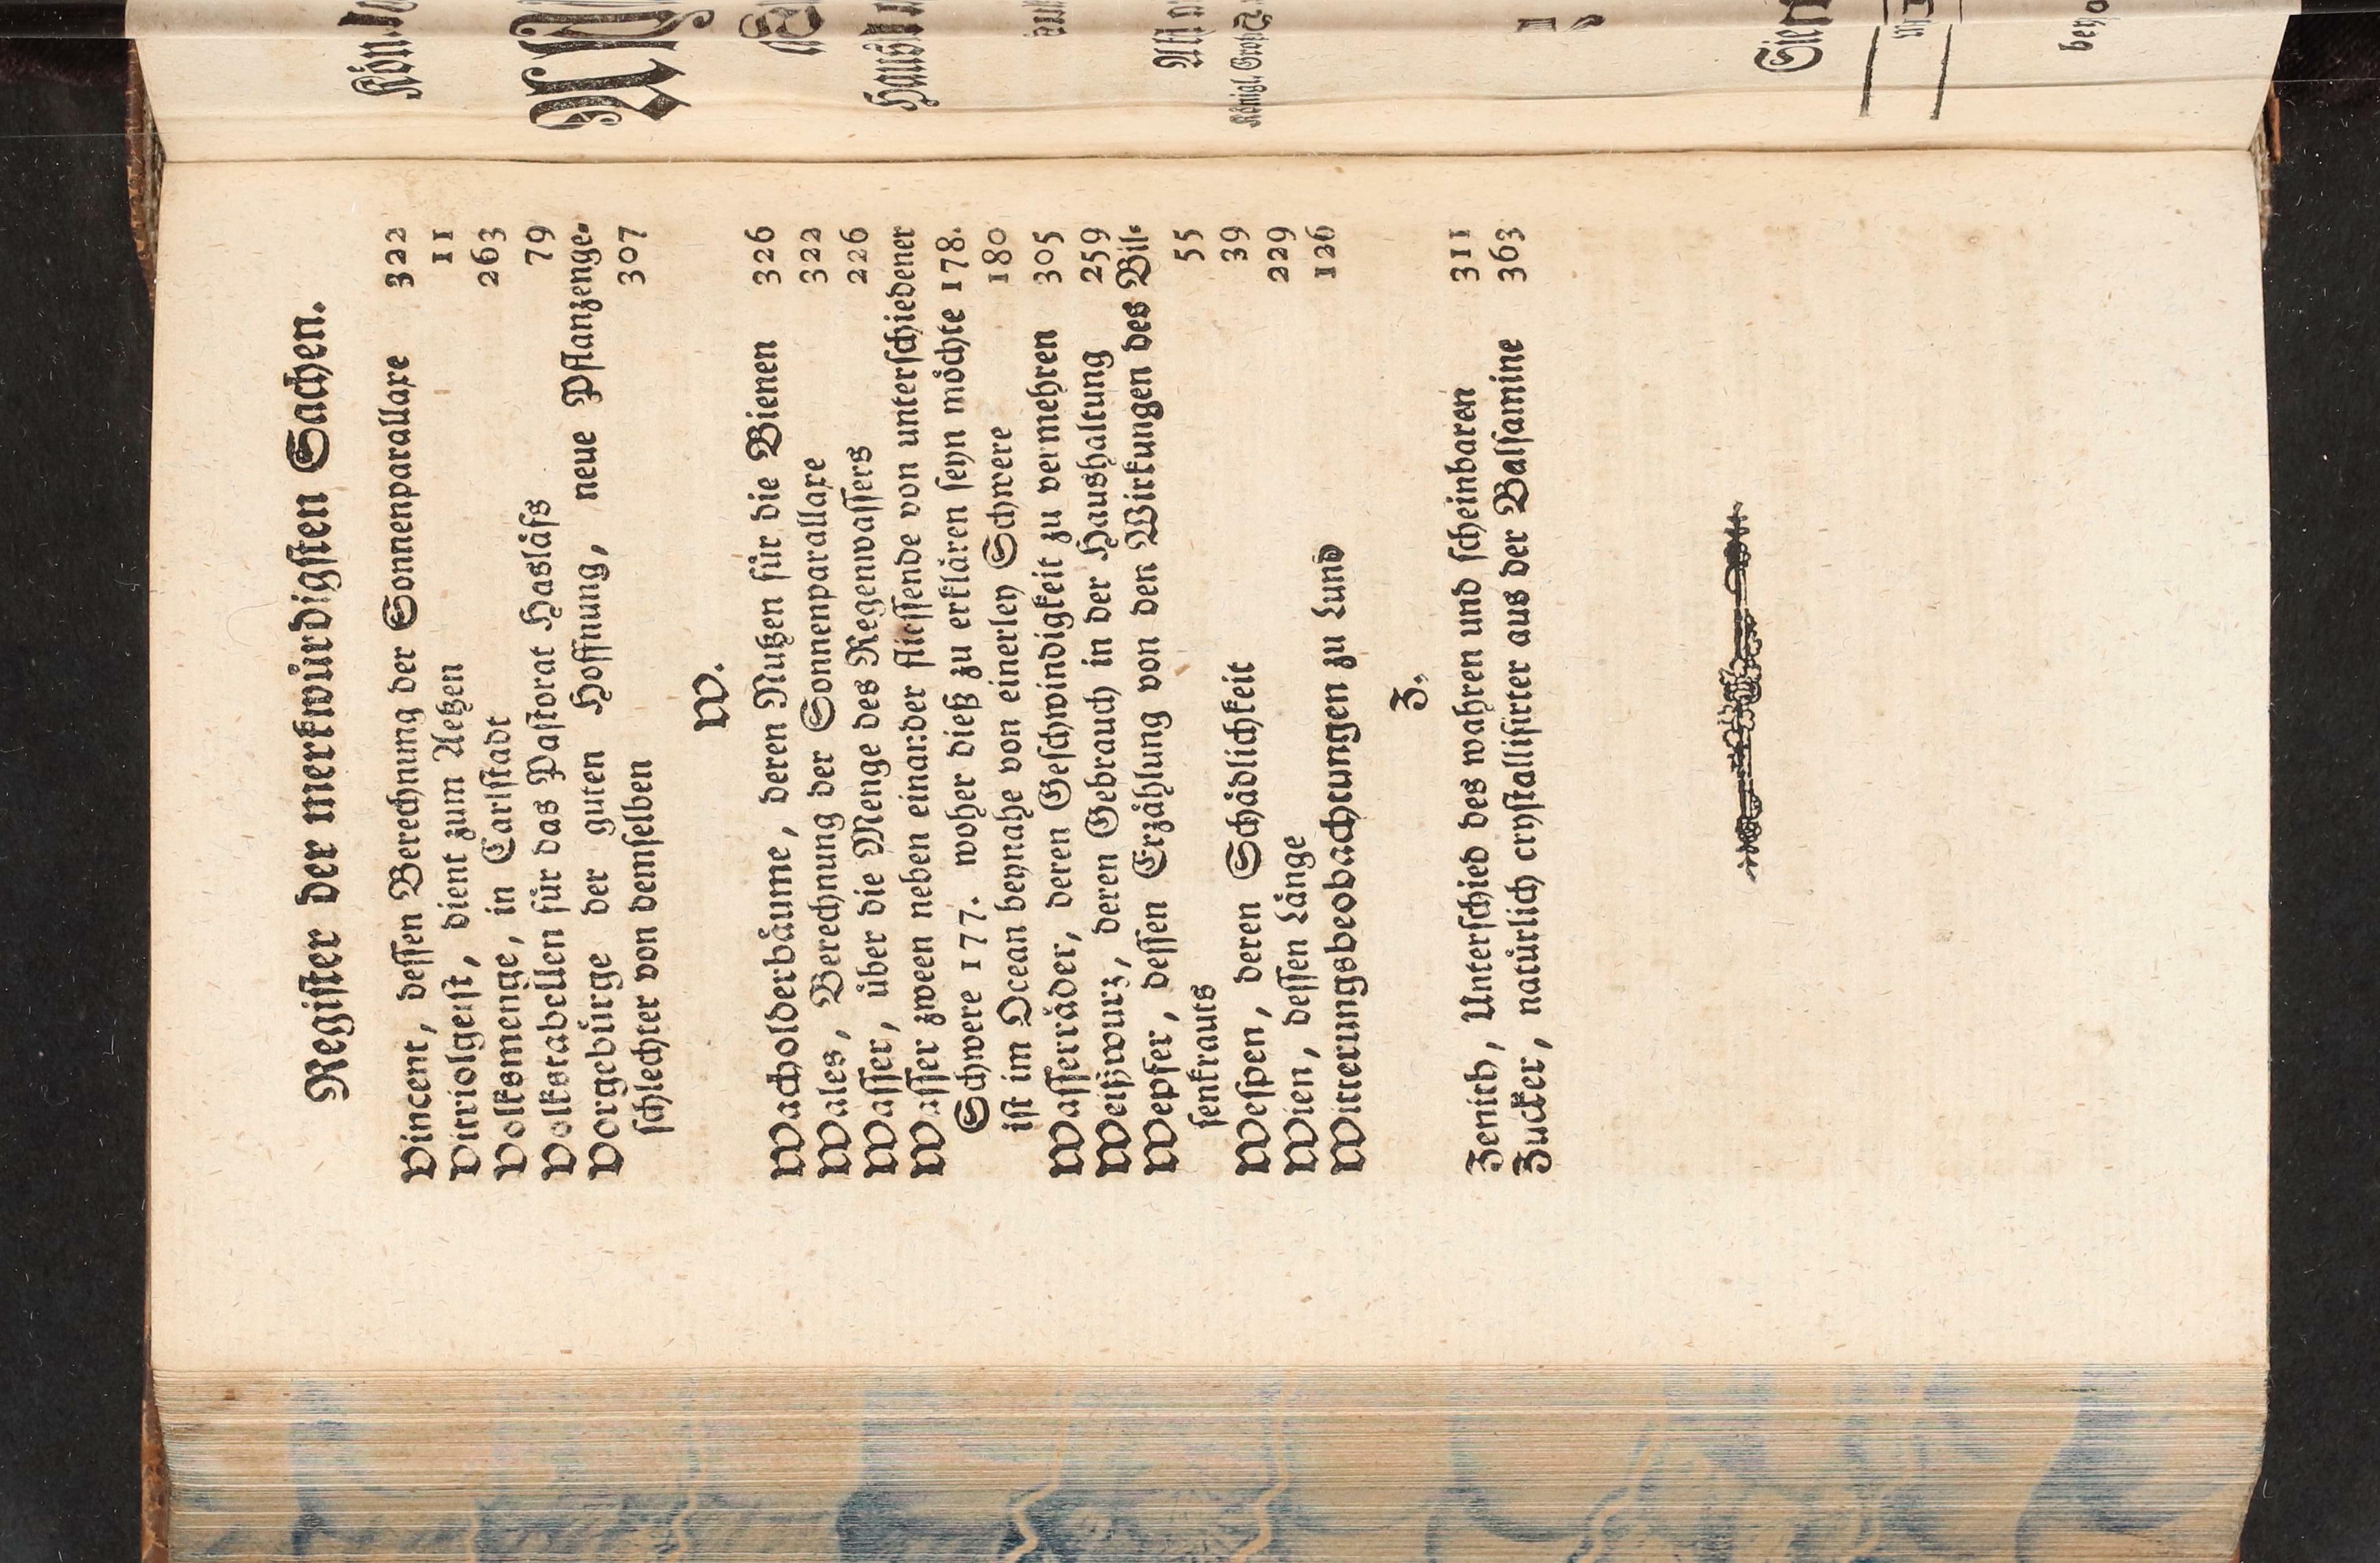 Register der merkwürdigsten Sachen.
Vincent, dessen Berechnung der Sonnenparallaxe 322
Vitriolgeist, dient zum Aetzen 11
Volksmenge, in Carlstadt 263
Volkstabellen für das Pastorat Hasläfs 79
Vorgebürge der guten Hoffnung, neue Pflanzenge-
schlechter von demselben 307
W.
Wacholderbäume, deren Nutzen für die Bienen 326
Wales, Berechnung der Sonnenparallaxe 322
Wasser, über die Menge des Regenwassers 226
Wasser zween neben einander fliessende von unterschiedener
Schwere 177. woher dieß zu erklären seyn möchte 178.
ist im Ocean beynahe von einerley Schwere 180
Wasserräder, deren Geschwindigkeit zu vermehren 305
Weißwurz, deren Gebrauch in der Haushaltung 259
Wepfer, dessen Erzählung von den Wirkungen des Bil-
senkrauts 55
Wespen, deren Schädlichkeit 39
Wien, dessen Länge 229
Witterungsbeobachtungen zu Lund 126
Z.
Zenith, Unterschied des wahren und scheinbaren 311
Zucker, natürlich crystallisirter aus der Balsamine 363